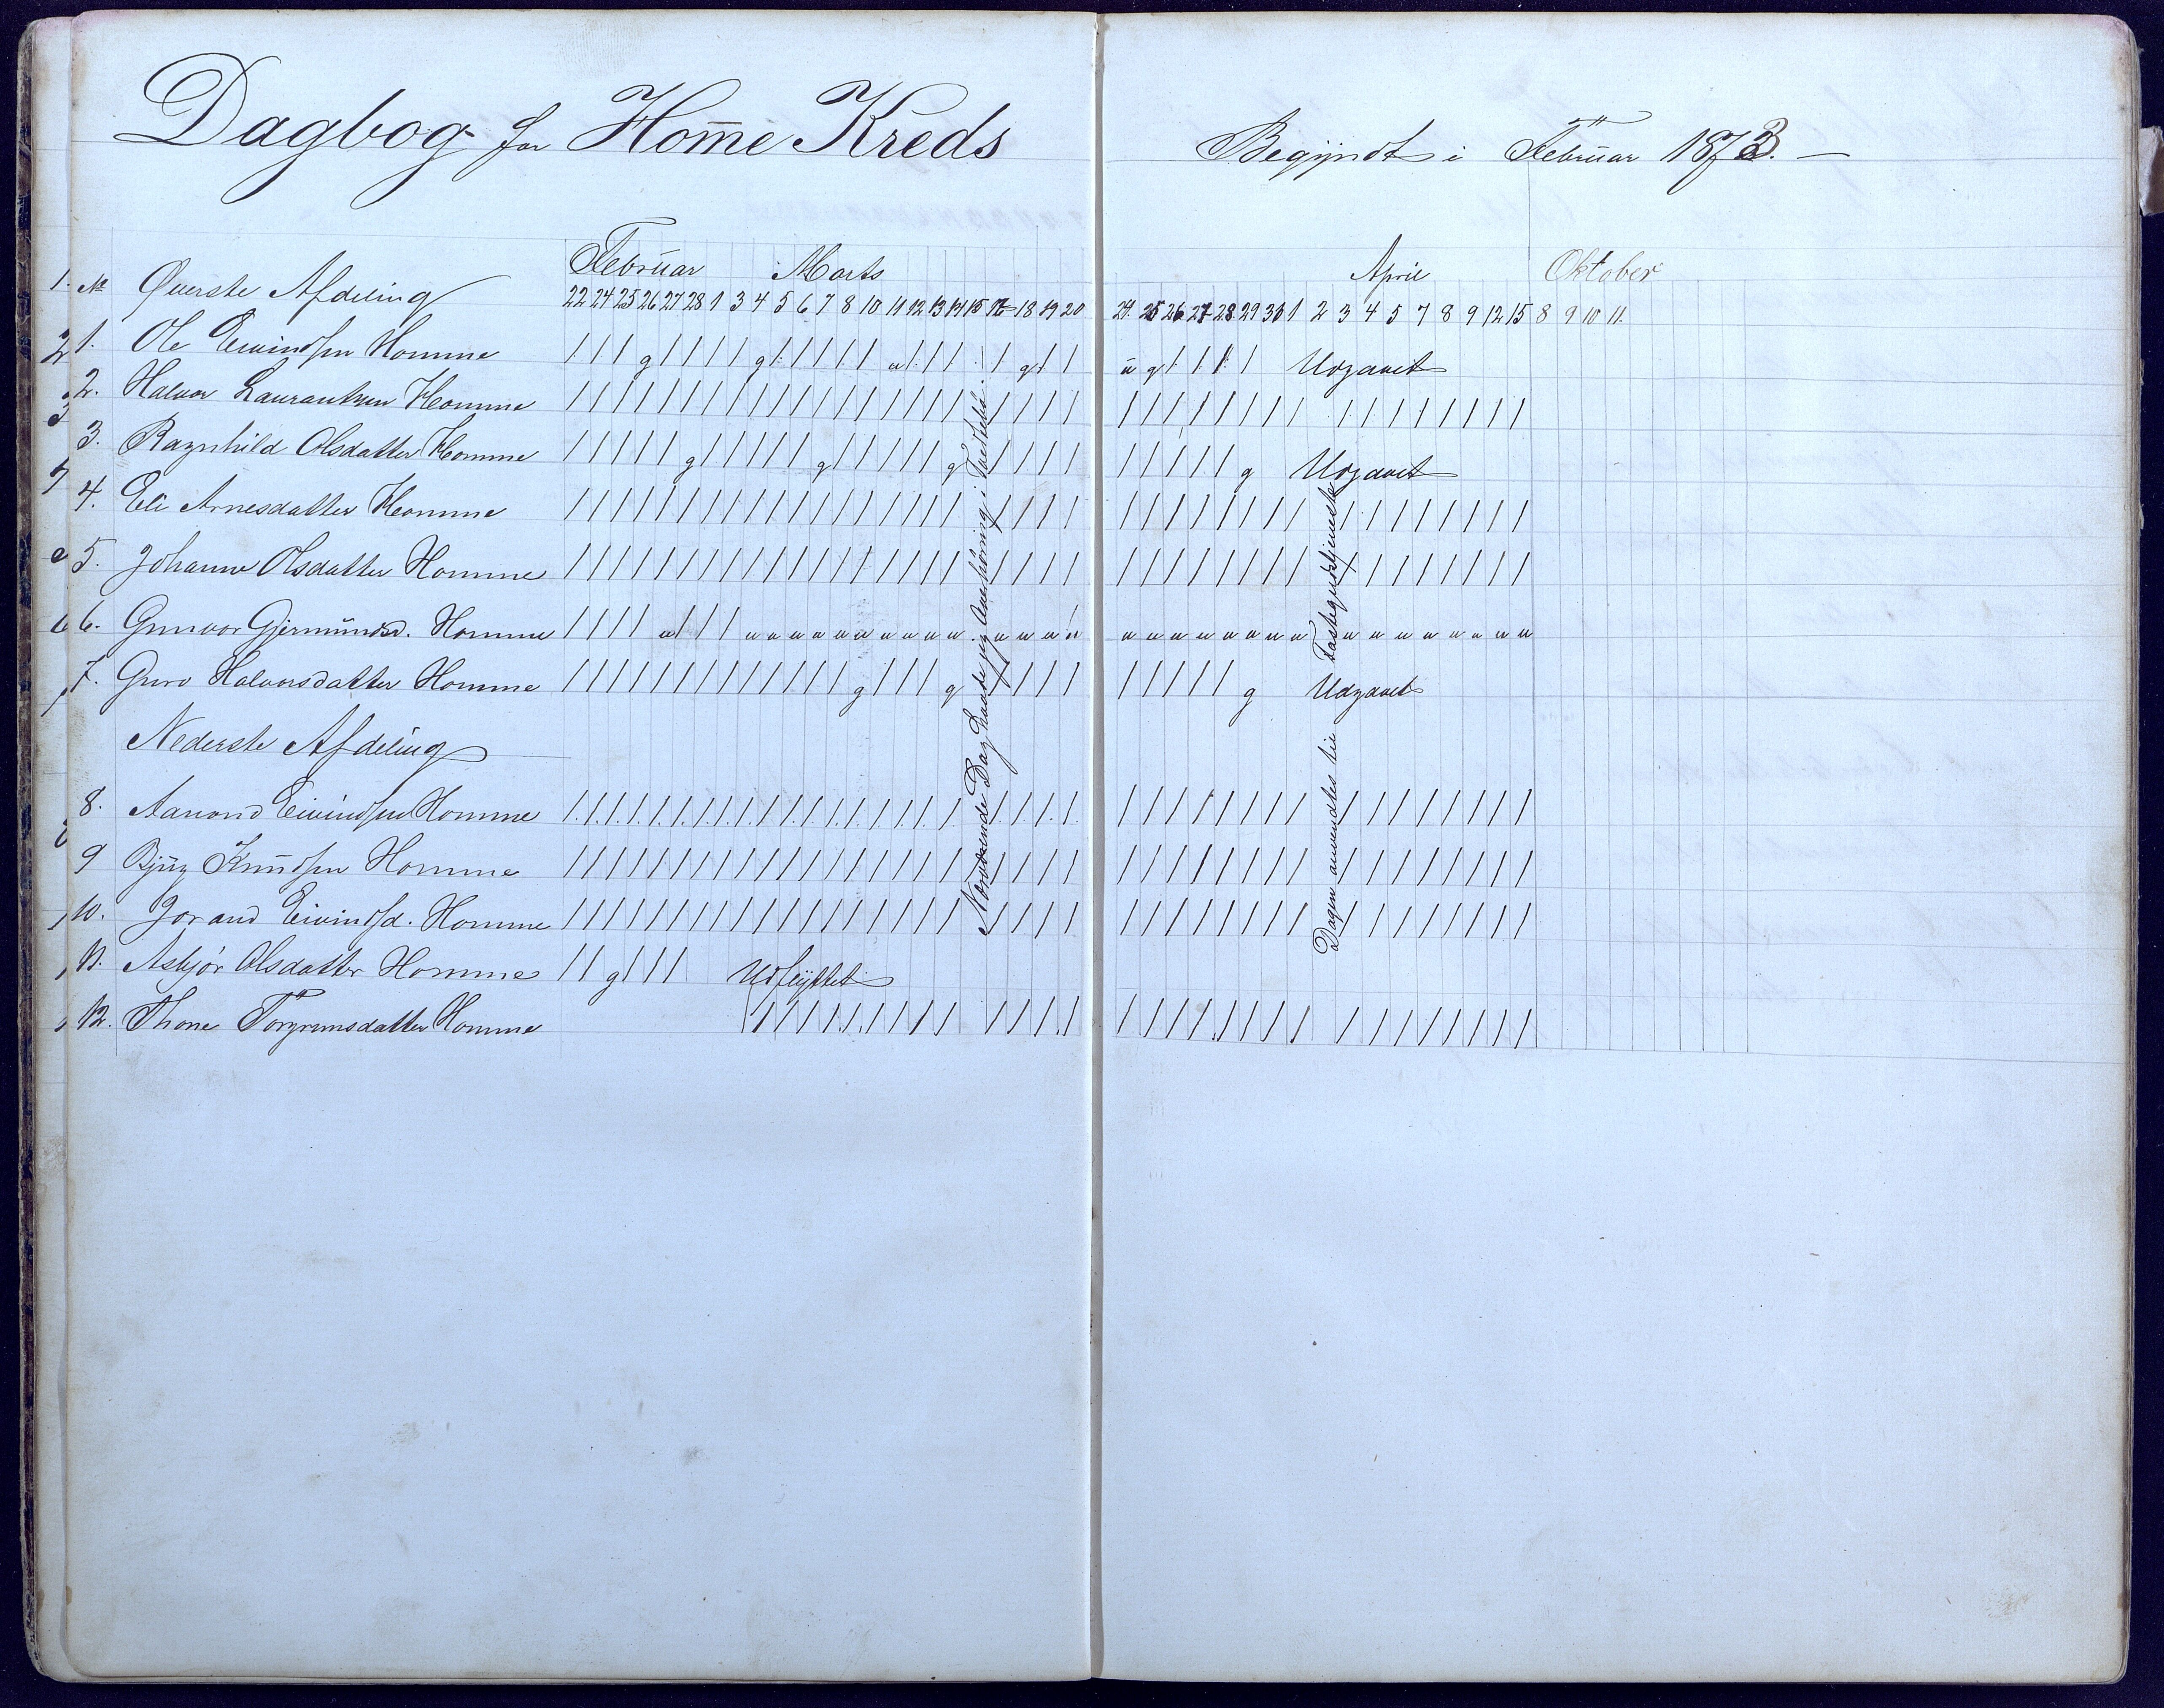 Dagbog for Hom̄e Kreds
Begyndt i Februar 1873. —
Februar Marts April Oktober
№ Øverste Afdeling 22 24 25 26 27 28 1 3 4 5 6 7 8 10 11 12 13 14 15 17 18 19 20 24. 25 26 27 28. 29 31 1 2 3 4 5 7 8 9 12 15 8 9 10 11.
1. Ole Eivindsen Homme / / / g / / / / g / / / / / u / / / / g / / u g / / / / Udgaaet
2. Halvor Laurantsen Homme / / / / / / / / / / / / / / / / / / / / / / / / / / / / / / / / / / / / / /
3. Ragnhild Olsdatter Homme / / / / / g / / / / / g / / / / / g / / / / / / / / / g Udgaaet
4. Eli Arnesdatter Homme / / / / / / / / / / / / / / / / / / / / / / / / / / / / / / / / / / / / / /
5. Johanne Olsdatter Homme / / / / / / / / / / / / / / / / / / / / / / / / / / / / / / / / / / / / / /
6. Gunvor Gjermundsd. Homme / / / / u / / / u u u u u u u u u u u u u u u u u u u u u u u u u u u u u u
7. Guro Halvorsdatter Homme / / / / / / / / / / / / g / / / g / / / / / / / / / g Udgaaet
Nederste Afdeling
8. Aanond Eivindsen Homme / / / / / / / / / / / / / / / / / / / / / / / / / / / / / / / / / / / / / /
9 Bjug Knudsen Homme / / / / / / / / / / / / / / / / / / / / / / / / / / / / / / / / / / / / / /
10. Jorand Eivindsd. Homme / / / / / / / / / / / / / / / / / / / / / / / / / / / / / / / / / / / / / /
11. Asbjør Olsdatter Homme / / g / / / Udflyttet
12. Thone Torgrimsdatter Homme / / / / / / / / / / / / / / / / / / / / / / / / / / / / / /
Nærværende Dag havde jeg
Dagen anvendtes til Fastegudstjeneste